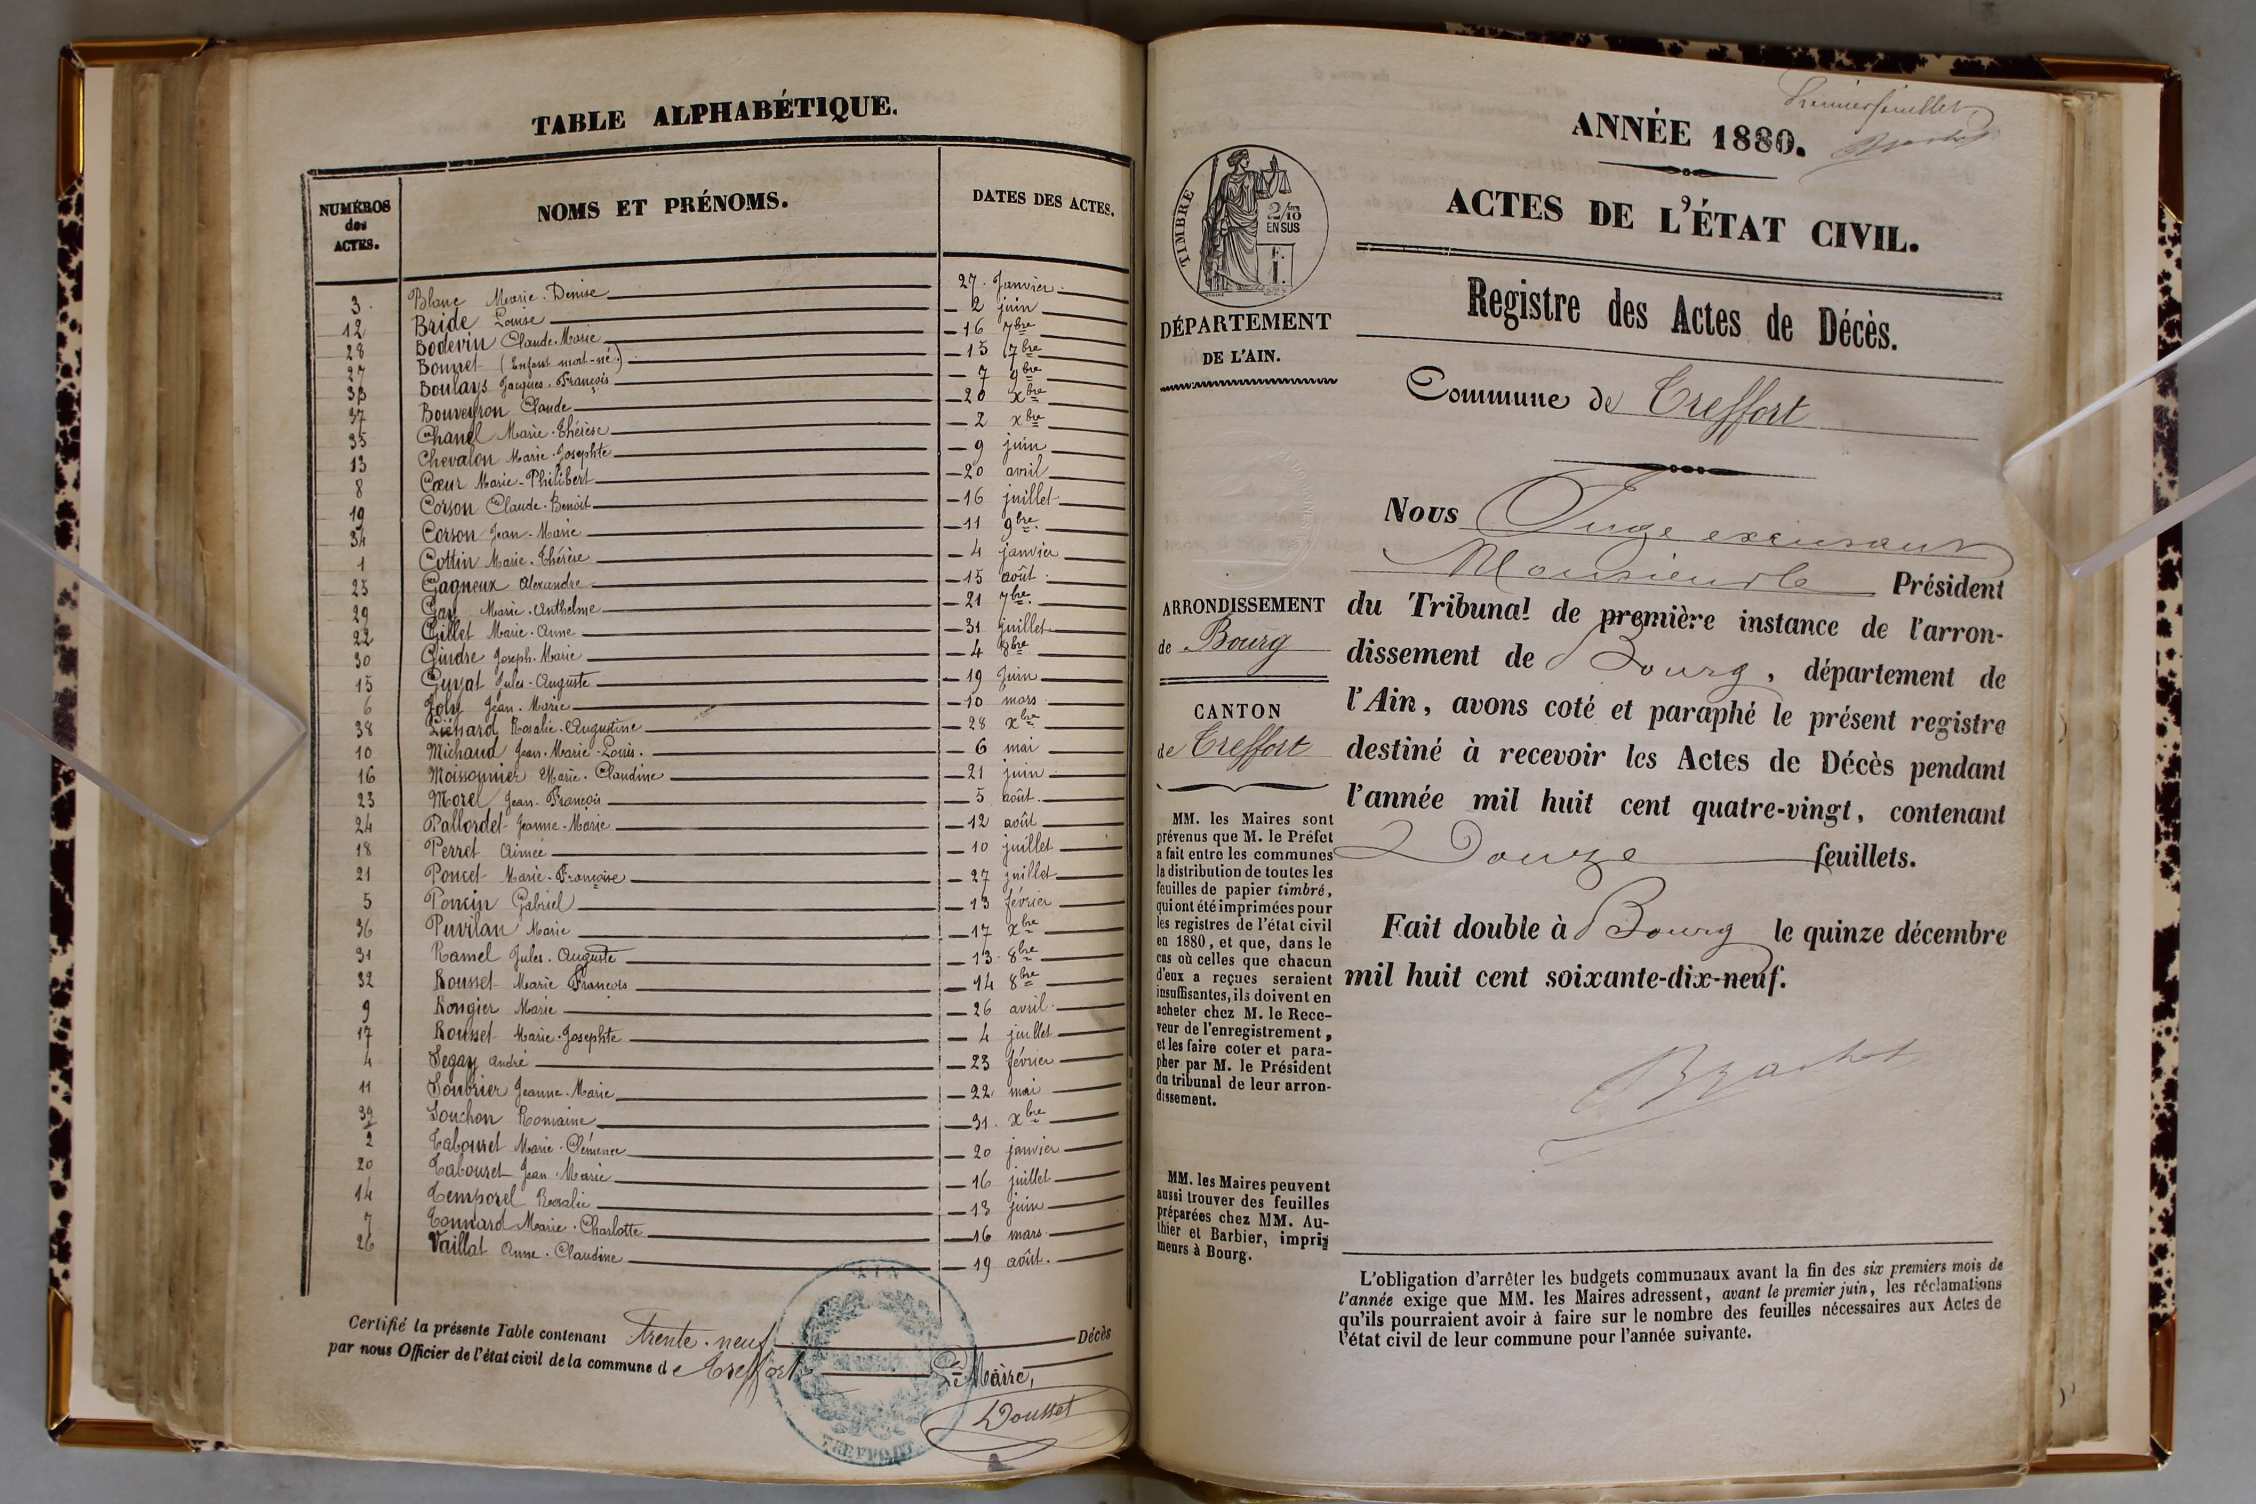 TABLE ALPHABÉTIQUE.
NUMÉROS des ACTES. NOMS ET PRÉNOMS. DATES DES ACTES.
3. Blanc Marie-Denise 27. Janvier.
12 Bride Louise 2 juin
28 Bodevin Claude-Marie 16 7bre
27 Bonnet (Enfant mort-né.) 15 7bre
33 Boulays Jacques-François 7 9bre
37 Bouveyron Claude 20 xbre
35 Chanel Marie-Thérèse 2 xbre
13 Chevalon Marie-Josephte 9 juin
8 Cœur Marie-Philibert 20 avril
19 Corson Claude-Benoit 16 juillet
34 Corson Jean-Marie 11 9bre
1 Cottin Marie-Thérèse 4 janvier
25 Gagneux Alexandre 15 août
29 Gay Marie-Anthelme 21 7bre
22 Gillet Marie-Anne 31 juillet
30 Gindre Joseph-Marie 4 8bre
15 Guyat Jules-Auguste 19 Juin
6 Joly Jean-Marie 10 mars
38 Liénard Rosalie-Augustine 28 xbre
10 Michaud Jean-Marie-Louis. 6 mai
16 Moissonnier Marie-Claudine 21 juin
23 Morel Jean-François 5 août.
24 Pallordet Jeanne-Marie 12 août
18 Perret Aimée 10 juillet
21 Poncet Marie-Françoise 27 juillet
5 Poncin Gabriel 13 février
36 Puvilan Marie 17 xbre
31 Ramel Jules-Auguste 13 8bre
32 Rousset Marie François 14 8bre
9 Rongier Marie 26 avril
17 Rousset Marie-Josephte 4 juillet
4 Segay André 23 février
11 Soubrier Jeanne-Marie 22 mai
39 Souchon Romaine 31. xbre
2 Tabouret Marie-Clémence 20 janvier
20 Tabouret Jean-Marie 16 juillet
14 Temporel Rosalie 13 juin
7 Tonnard Marie-Charlotte 16 mars
26 Vaillat Anne-Claudine 19 août.
Certifié la présente Table contenant Trente-neuf Décès
par nous Officier de l'état civil de la commune de Treffort Le Maire,
Dousset
AIN
TREFFORT
Premier feuillet
ANNÉE 1880.
ACTES DE L'ÉTAT CIVIL.
Registre des Actes de Décès.
Commune de Treffort
TIMBRE
2/10
EN SUS
1 f.
DÉPARTEMENT
DE L'AIN.
ARRONDISSEMENT
de Bourg
CANTON
de Treffort
MM. les Maires sont
prévenus que M. le Préfet
a fait entre les communes
la distribution de toutes les
feuilles de papier timbré,
qui ont été imprimées pour
les registres de l'état civil
en 1880, et que, dans le
cas où celles que chacun
d'eux a reçues seraient
insuffisantes, ils doivent en
acheter chez M. le Rece-
veur de l'enregistrement,
et les faire coter et para-
pher par M. le Président
du tribunal de leur arron-
dissement.
MM. les Maires peuvent
aussi trouver des feuilles
préparées chez MM. Au-
thier et Barbier, impri-
meurs à Bourg.
Nous Juge excusant
Monsieur le Président
du Tribunal de première instance de l'arron-
dissement de Bourg, département de
l'Ain, avons coté et paraphé le présent registre
destiné à recevoir les Actes de Décès pendant
l'année mil huit cent quatre-vingt, contenant
Douze feuillets.
Fait double à Bourg le quinze décembre
mil huit cent soixante-dix-neuf.
L'obligation d'arrêter les budgets communaux avant la fin des six premiers mois de
l'année exige que MM. les Maires adressent, avant le premier juin, les réclamations
qu'ils pourraient avoir à faire sur le nombre des feuilles nécessaires aux Actes de
l'état civil de leur commune pour l'année suivante.